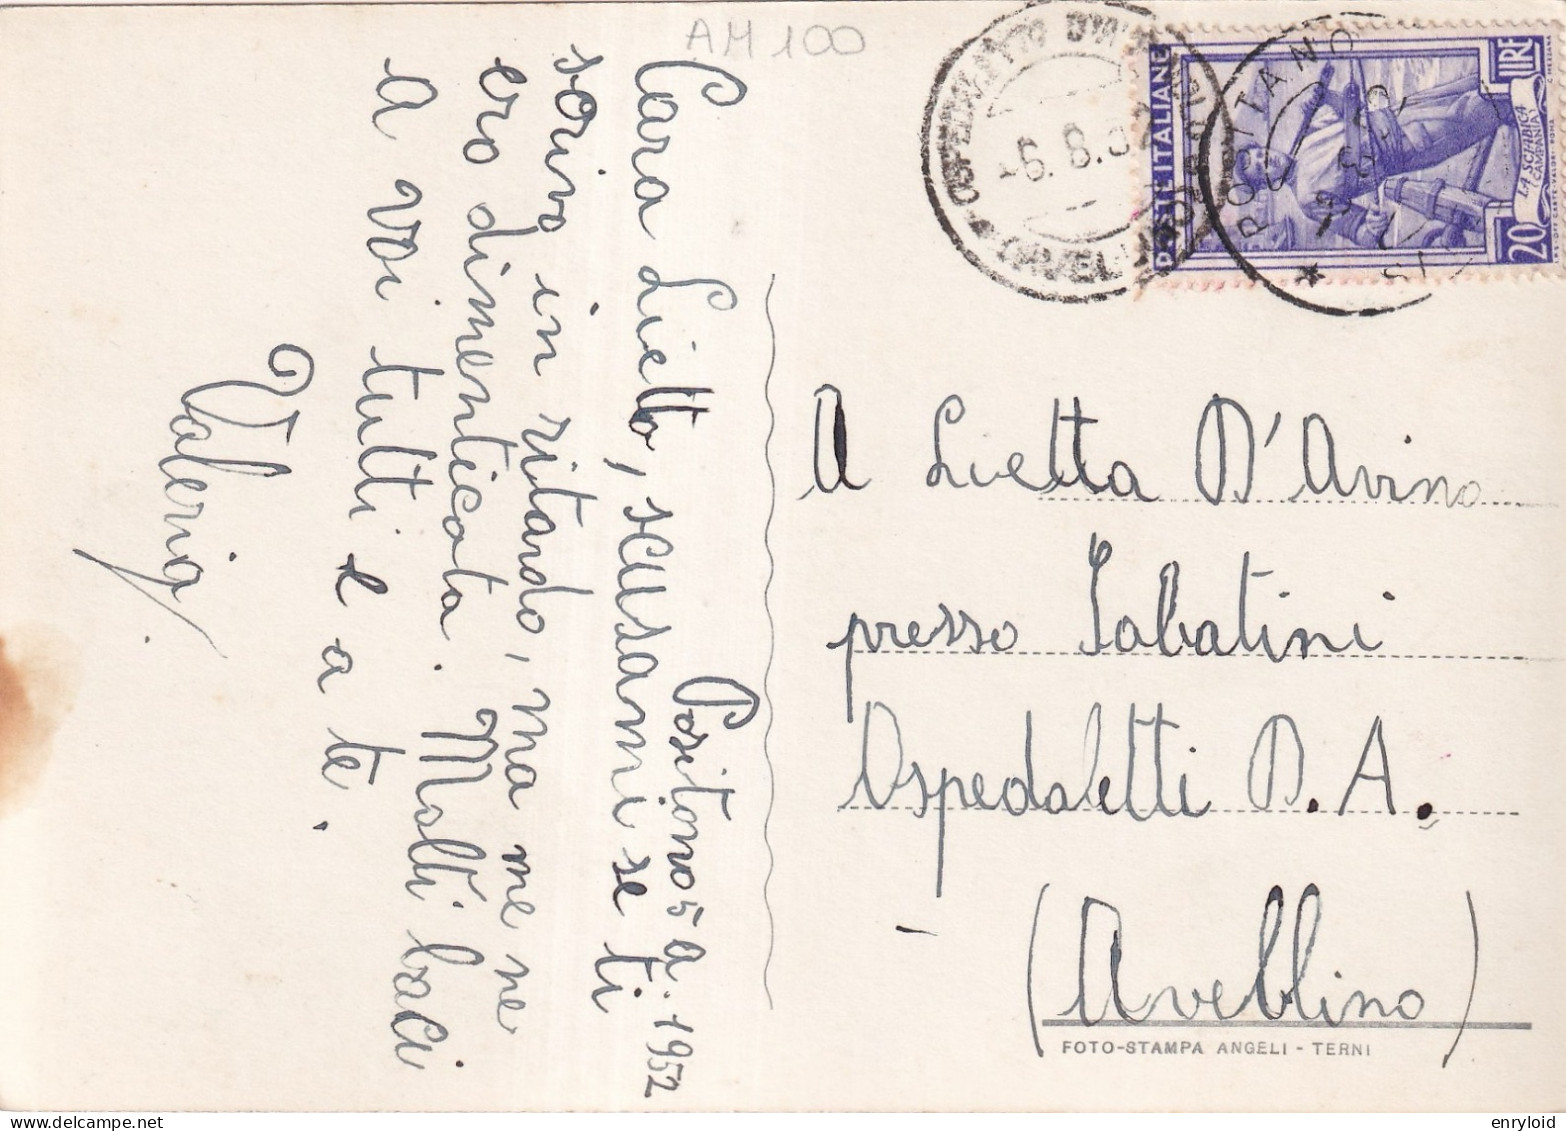 AM 100
Positano 5 a. 1952
Cara Lietta, scusami se ti
scrivo in ritardo, ma me ne
ero dimenticata. Molti baci
a voi tutti e a te.
Valeria
POSTE ITALIANE
LIRE
20
LA SCIABICA
CAMPANIA
POSITANO
-6.8.52
A Lietta D'Avino
presso Sabatini
Ospedaletti D. A.
(Avellino)
FOTO-STAMPA ANGELI - TERNI
enryloid